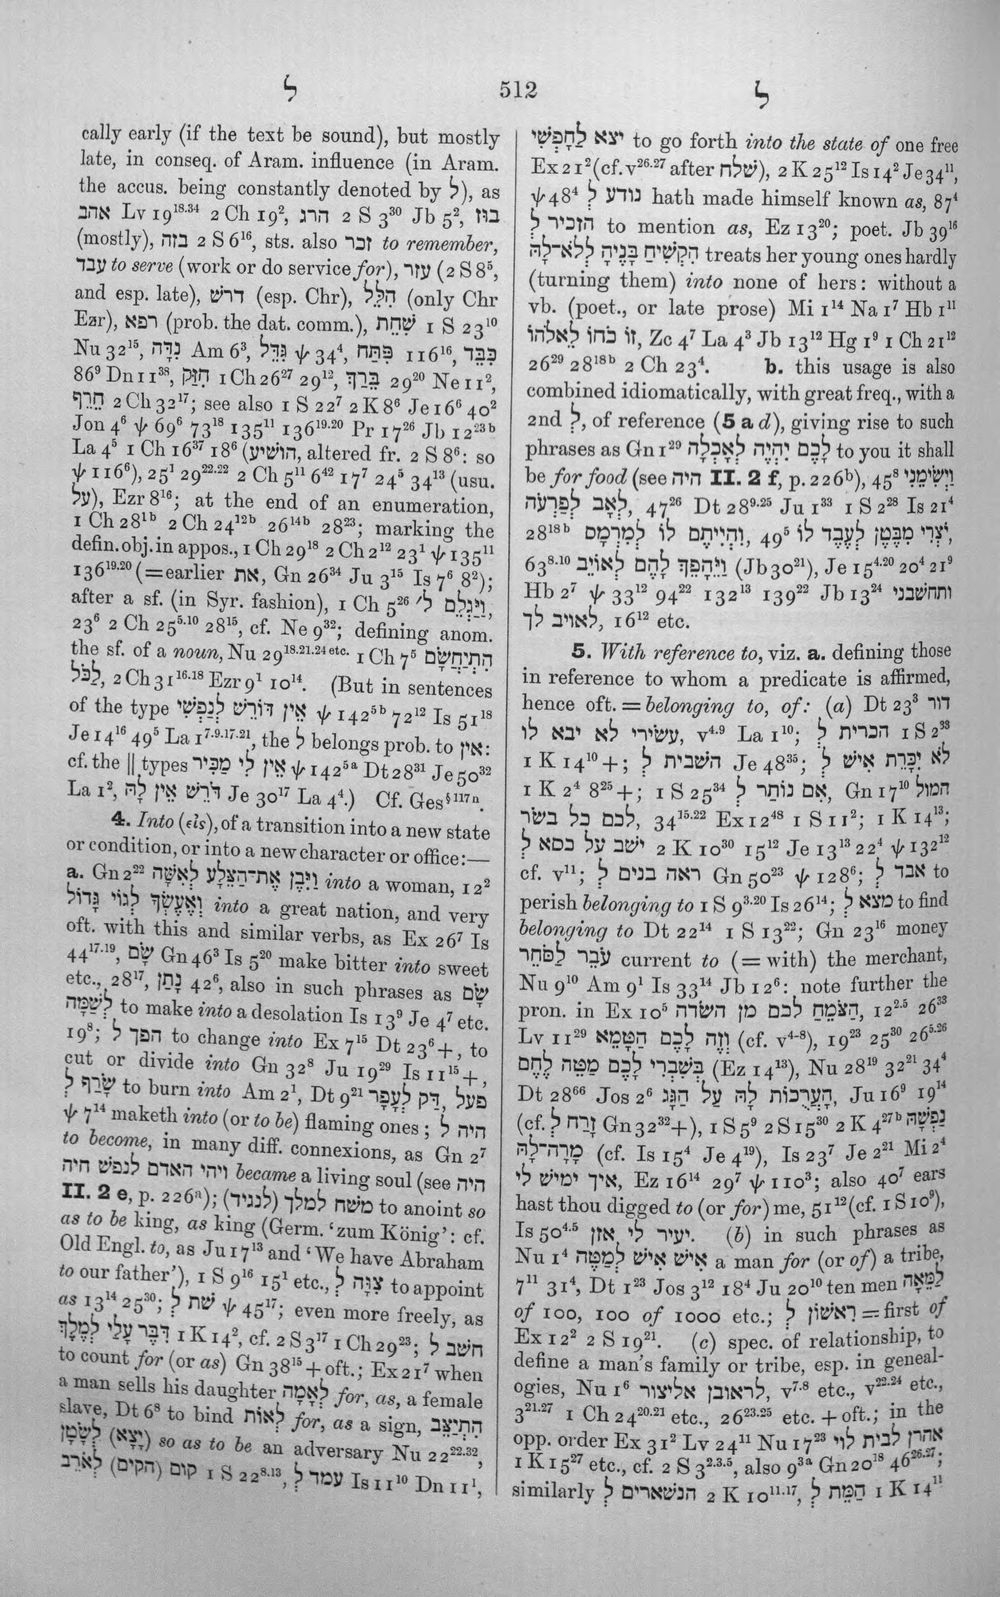 לְ
512
לְ
cally early (if the text be sound), but mostly
late, in conseq. of Aram. influence (in Aram.
the accus. being constantly denoted by לְ), as
אהב Lv 19¹⁸·³⁴ 2 Ch 19², הרג 2 S 3³⁰ Jb 5², בוז
(mostly), בזה 2 S 6¹⁶, sts. also זכר to remember,
עבד to serve (work or do service for), עזר (2 S 8⁵,
and esp. late), דרשׁ (esp. Chr), הִלֵּל (only Chr
Ezr), רפא (prob. the dat. comm.), שִׁחֵת 1 S 23¹⁰
Nu 32¹⁵, נִדָּה Am 6³, גִּדֵּל ψ 34⁴, פִּתַּח 116¹⁶, כִּבֵּד
86⁹ Dn 11³⁸, חִזֵּק 1 Ch 26²⁷ 29¹², בֵּרַךְ 29²⁰ Ne 11²,
חֵרֵף 2 Ch 32¹⁷; see also 1 S 22⁷ 2 K 8⁶ Je 16⁶ 40²
Jon 4⁶ ψ 69⁶ 73¹⁸ 135¹¹ 136¹⁹·²⁰ Pr 17²⁶ Jb 12²³ᵇ
La 4⁵ 1 Ch 16³⁷ 18⁶ (הושׁיע, altered fr. 2 S 8⁶: so
ψ 116⁶), 25¹ 29²²·²² 2 Ch 5¹¹ 6⁴² 17⁷ 24⁵ 34¹³ (usu.
על), Ezr 8¹⁶; at the end of an enumeration,
1 Ch 28¹ᵇ 2 Ch 24¹²ᵇ 26¹⁴ᵇ 28²³; marking the
defin. obj. in appos., 1 Ch 29¹⁸ 2 Ch 2¹² 23¹ ψ 135¹¹
136¹⁹·²⁰ (=earlier את, Gn 26³⁴ Ju 3¹⁵ Is 7⁶ 8²);
after a sf. (in Syr. fashion), 1 Ch 5²⁶ וַיַּגְלֵם ל׳,
23⁶ 2 Ch 25⁵·¹⁰ 28¹⁵, cf. Ne 9³²; defining anom.
the sf. of a noun, Nu 29¹⁸·²¹·²⁴ etc. 1 Ch 7⁵ הִתְיַחְשָׂם
לַכֹּל, 2 Ch 31¹⁶·¹⁸ Ezr 9¹ 10¹⁴. (But in sentences
of the type אֵין דּוֹרֵשׁ לְנַפְשִׁי ψ 142⁵ᵇ 72¹² Is 51¹⁸
Je 14¹⁶ 49⁵ La 1⁷·⁹·¹⁷·²¹, the לְ belongs prob. to אין:
cf. the || types אֵין לִי מַכִּיר ψ 142⁵ᵃ Dt 28³¹ Je 50³²
La 1², דֹּרֵשׁ אֵין לָהּ Je 30¹⁷ La 4⁴.) Cf. Ges§ ¹¹⁷ ⁿ.
4. Into (εἰς), of a transition into a new state
or condition, or into a new character or office:—
a. Gn 2²² וַיִּבֶן אֶת־הַצֵּלָע לְאִשָּׁה into a woman, 12²
וְאֶעֶשְׂךָ לְגוֹי גָּדוֹל into a great nation, and very
oft. with this and similar verbs, as Ex 26⁷ Is
44¹⁷·¹⁹, שָׂם Gn 46³ Is 5²⁰ make bitter into sweet
etc., 28¹⁷, נָתַן 42⁶, also in such phrases as שָׂם
לְשַׁמָּה to make into a desolation Is 13⁹ Je 4⁷ etc.
19⁸; הפך לְ to change into Ex 7¹⁵ Dt 23⁶+, to
cut or divide into Gn 32⁸ Ju 19²⁹ Is 11¹⁵+,
שָׂרַף לְ to burn into Am 2¹, Dt 9²¹ דַּק לְעָפָר, פעל
ψ 7¹⁴ maketh into (or to be) flaming ones; היה לְ
to become, in many diff. connexions, as Gn 2⁷
ויהי האדם לנפשׁ חיה became a living soul (see היה
II. 2 e, p. 226ᵃ); משׁח למלך (לנגיד) to anoint so
as to be king, as king (Germ. ‘zum König’: cf.
Old Engl. to, as Ju 17¹³ and ‘We have Abraham
to our father’), 1 S 9¹⁶ 15¹ etc., צִוָּה לְ to appoint
as 13¹⁴ 25³⁰; שׁת לְ ψ 45¹⁷; even more freely, as
דִּבֶּר עָלַי לְמֶלֶךְ 1 K 14², cf. 2 S 3¹⁷ 1 Ch 29²³; חשׁב לְ
to count for (or as) Gn 38¹⁵+oft.; Ex 21⁷ when
a man sells his daughter לְאָמָה for, as, a female
slave, Dt 6⁸ to bind לְאוֹת for, as a sign, הִתְיַצֵּב
(יָצָא) לְשָׂטָן so as to be an adversary Nu 22²²·³²,
קום (הקים) לְאֹרֵב 1 S 22⁸·¹³, עמד לְ Is 11¹⁰ Dn 11¹,
יצא לַחָפְשִׁי to go forth into the state of one free
Ex 21² (cf. v²⁶·²⁷ after שׁלח), 2 K 25¹² Is 14² Je 34¹¹,
ψ 48⁴ נודע לְ hath made himself known as, 87⁴
הזכיר לְ to mention as, Ez 13²⁰; poet. Jb 39¹⁶
הִקְשִׁיחַ בָּנֶיהָ לְּלֹא־לָהּ treats her young ones hardly
(turning them) into none of hers: without a
vb. (poet., or late prose) Mi 1¹⁴ Na 1⁷ Hb 1¹¹
זוֹ כֹחוֹ לֵאלֹהוֹ, Zc 4⁷ La 4³ Jb 13¹² Hg 1⁹ 1 Ch 21¹²
26²⁹ 28¹⁸ᵇ 2 Ch 23⁴. b. this usage is also
combined idiomatically, with great freq., with a
2nd לְ, of reference (5 a d), giving rise to such
phrases as Gn 1²⁹ לָכֶם יִהְיֶה לְאָכְלָה to you it shall
be for food (see היה II. 2 f, p. 226ᵇ), 45⁸ וַיְשִׂימֵנִי
לְאָב לְפַרְעֹה, 47²⁶ Dt 28⁹·²⁵ Ju 1³³ 1 S 2²⁸ Is 21⁴
28¹⁸ᵇ וִהְיִיתֶם לוֹ לְמִרְמָס, 49⁵ יֹצְרִי מִבֶּטֶן לְעֶבֶד לוֹ,
63⁸·¹⁰ וַיֵּהָפֵךְ לָהֶם לְאוֹיֵב (Jb 30²¹), Je 15⁴·²⁰ 20⁴ 21⁹
Hb 2⁷ ψ 33¹² 94²² 132¹³ 139²² Jb 13²⁴ ותחשׁבני
לאויב לך, 16¹² etc.
5. With reference to, viz. a. defining those
in reference to whom a predicate is affirmed,
hence oft. = belonging to, of: (a) Dt 23³ דור
עשׂירי לא יבא לו, v⁴·⁹ La 1¹⁰; הכרית לְ 1 S 2³³
לֹא יִכָּרֵת אִישׁ לְ; 1 K 14¹⁰+; השׁבית לְ Je 48³⁵;
1 K 2⁴ 8²⁵+; 1 S 25³⁴ אִם נוֹתַר לְ, Gn 17¹⁰ המול
לכם כל בשׂר, 34¹⁵·²² Ex 12⁴⁸ 1 S 11²; 1 K 14¹³;
ישׁב על כסא לְ 2 K 10³⁰ 15¹² Je 13¹³ 22⁴ ψ 132¹²
cf. v¹¹; ראה בנים לְ Gn 50²³ ψ 128⁶; אבד לְ to
perish belonging to 1 S 9³·²⁰ Is 26¹⁴; מצא לְ to find
belonging to Dt 22¹⁴ 1 S 13²²; Gn 23¹⁶ money
עֹבֵר לַסֹּחֵר current to (= with) the merchant,
Nu 9¹⁰ Am 9¹ Is 33¹⁴ Jb 12⁶: note further the
pron. in Ex 10⁵ הַצֹּמֵחַ לכם מן השׂדה, 12²·⁵ 26³³
Lv 11²⁹ וְזֶה לָכֶם הַטָּמֵא (cf. v⁴⁻⁸), 19²³ 25³⁰ 26⁵·²⁶
בְּשִׁבְרִי לָכֶם מַטֵּה לֶחֶם (Ez 14¹³), Nu 28¹⁹ 32²¹ 34⁴
Dt 28⁶⁶ Jos 2⁶ הָעֲרֻכוֹת לָהּ עַל הַגָּג, Ju 16⁹ 19¹⁴
(cf. זָרַח לְ Gn 32³²+), 1 S 5⁹ 2 S 15³⁰ 2 K 4²⁷ᵇ נַפְשָׁהּ
מָרָה־לָהּ (cf. Is 15⁴ Je 4¹⁹), Is 23⁷ Je 2²¹ Mi 2⁴
איך ימישׁ לי, Ez 16¹⁴ 29⁷ ψ 110³; also 40⁷ ears
hast thou digged to (or for) me, 51¹² (cf. 1 S 10⁹),
Is 50⁴·⁵ יעיר לי אזן. (b) in such phrases as
Nu 1⁴ אִישׁ אִישׁ לַמַּטֶּה a man for (or of) a tribe,
7¹¹ 31⁴, Dt 1²³ Jos 3¹² 18⁴ Ju 20¹⁰ ten men לַמֵּאָה
of 100, 100 of 1000 etc.; רִאשׁוֹן לְ = first of
Ex 12² 2 S 19²¹. (c) spec. of relationship, to
define a man’s family or tribe, esp. in geneal-
ogies, Nu 1⁶ לראובן אליצור, v⁷·⁸ etc., v²²·²⁴ etc.,
3²¹·²⁷ 1 Ch 24²⁰·²¹ etc., 26²³·²⁵ etc. + oft.; in the
opp. order Ex 31² Lv 24¹¹ Nu 17²³ אהרן לבית לוי
1 K 15²⁷ etc., cf. 2 S 3²·³·⁵, also 9³ᵃ Gn 20¹⁸ 46²⁶·²⁷;
similarly הנשׁארים לְ 2 K 10¹¹·¹⁷, הַמֵּת לְ 1 K 14¹¹